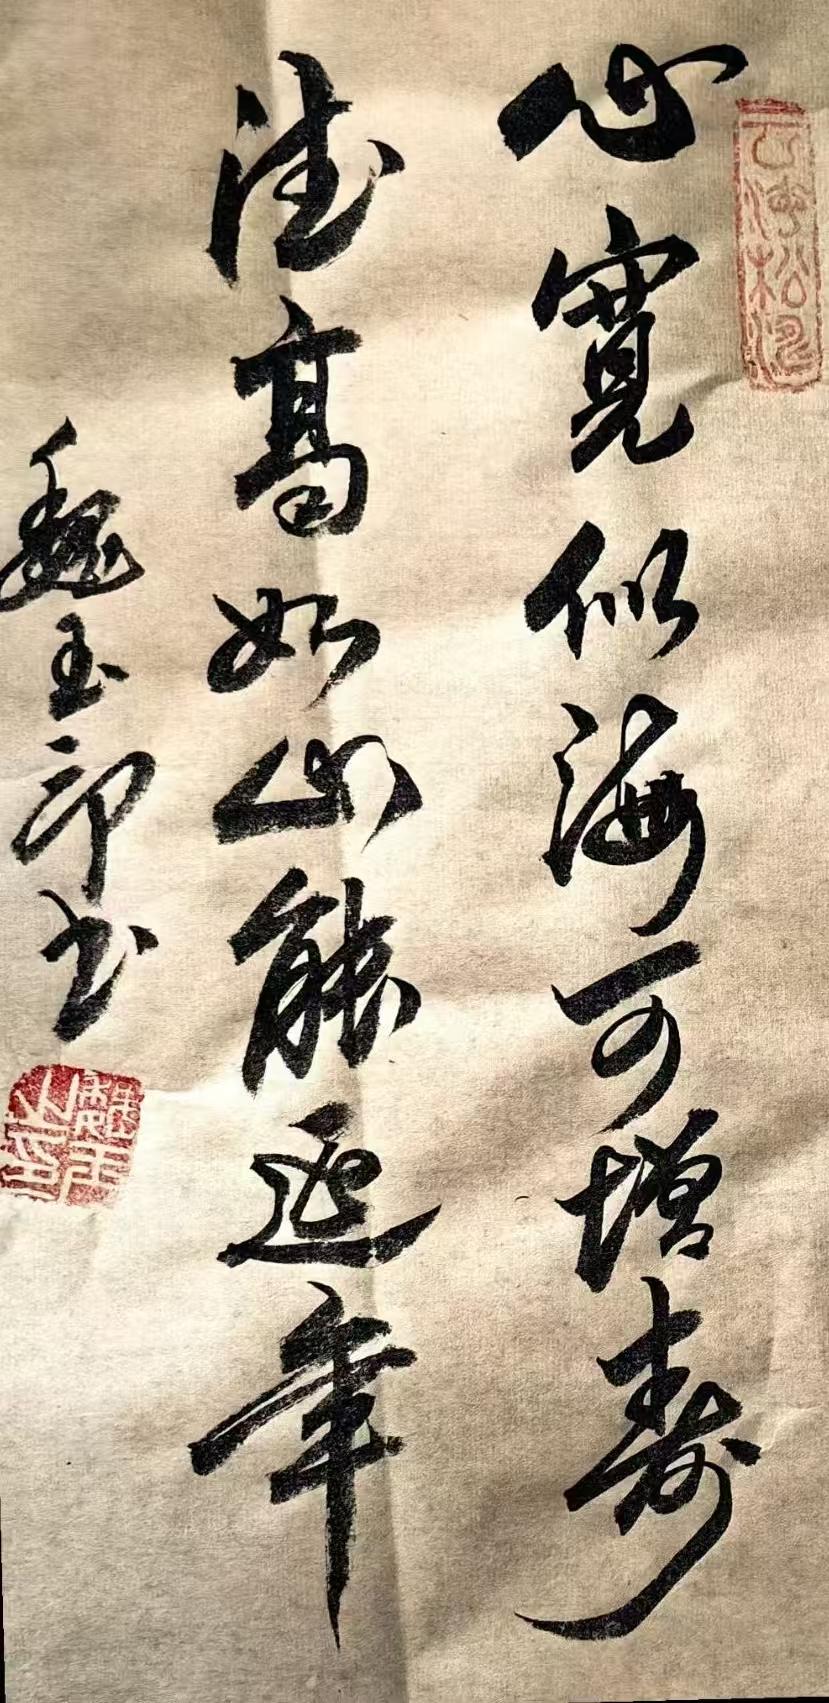 心寬似海可增壽
德高如山能延年
魏玉印书